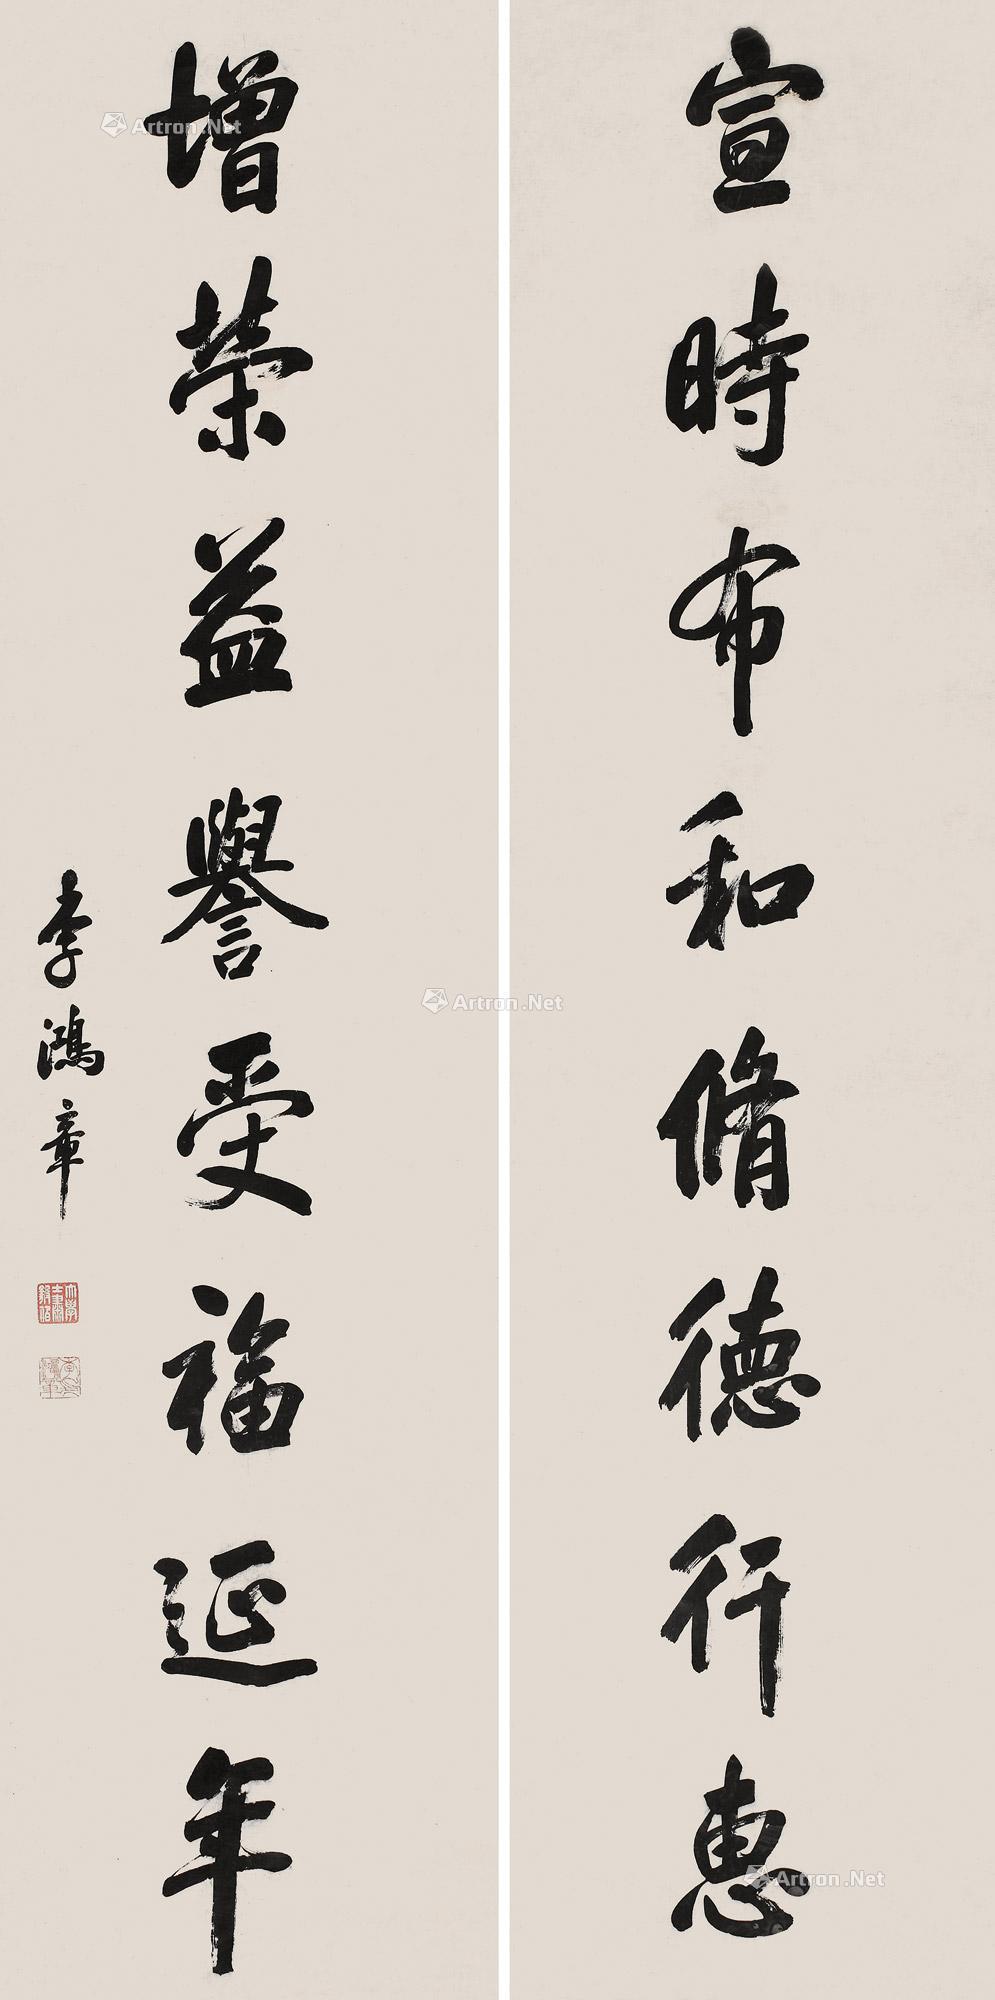 宣時布和脩德行惠
增榮益譽受福延年
李鴻章
Artron.Net
Artron.Net
Artron.Net